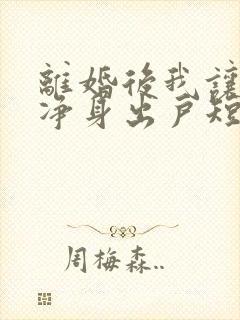 離婚後我讓
净身出戶短
周梅森..